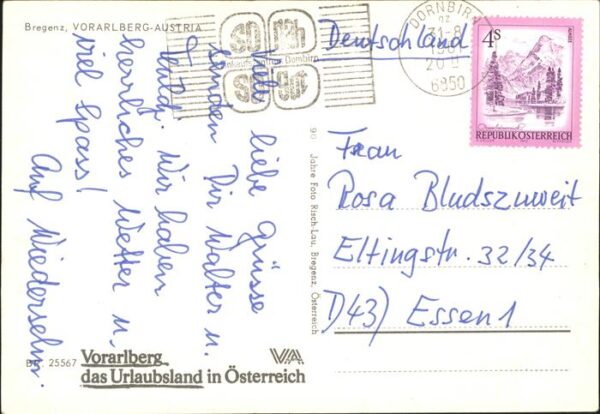 Bregenz, VORARLBERG-AUSTRIA
Deutschland
DORNBIRN
6850
4S
REPUBLIK ÖSTERREICH
Viele liebe Grüsse
senden Dir Walter u.
Wir haben
herrliches Wetter u.
viel Spass!
Auf Wiedersehn.
90 Jahre Foto Risch-Lau, Bregenz, Österreich
Frau
Rosa Bludszuweit
Eltingstr. 32/34
D43) Essen 1
25567
Vorarlberg
das Urlaubsland in Österreich
VA